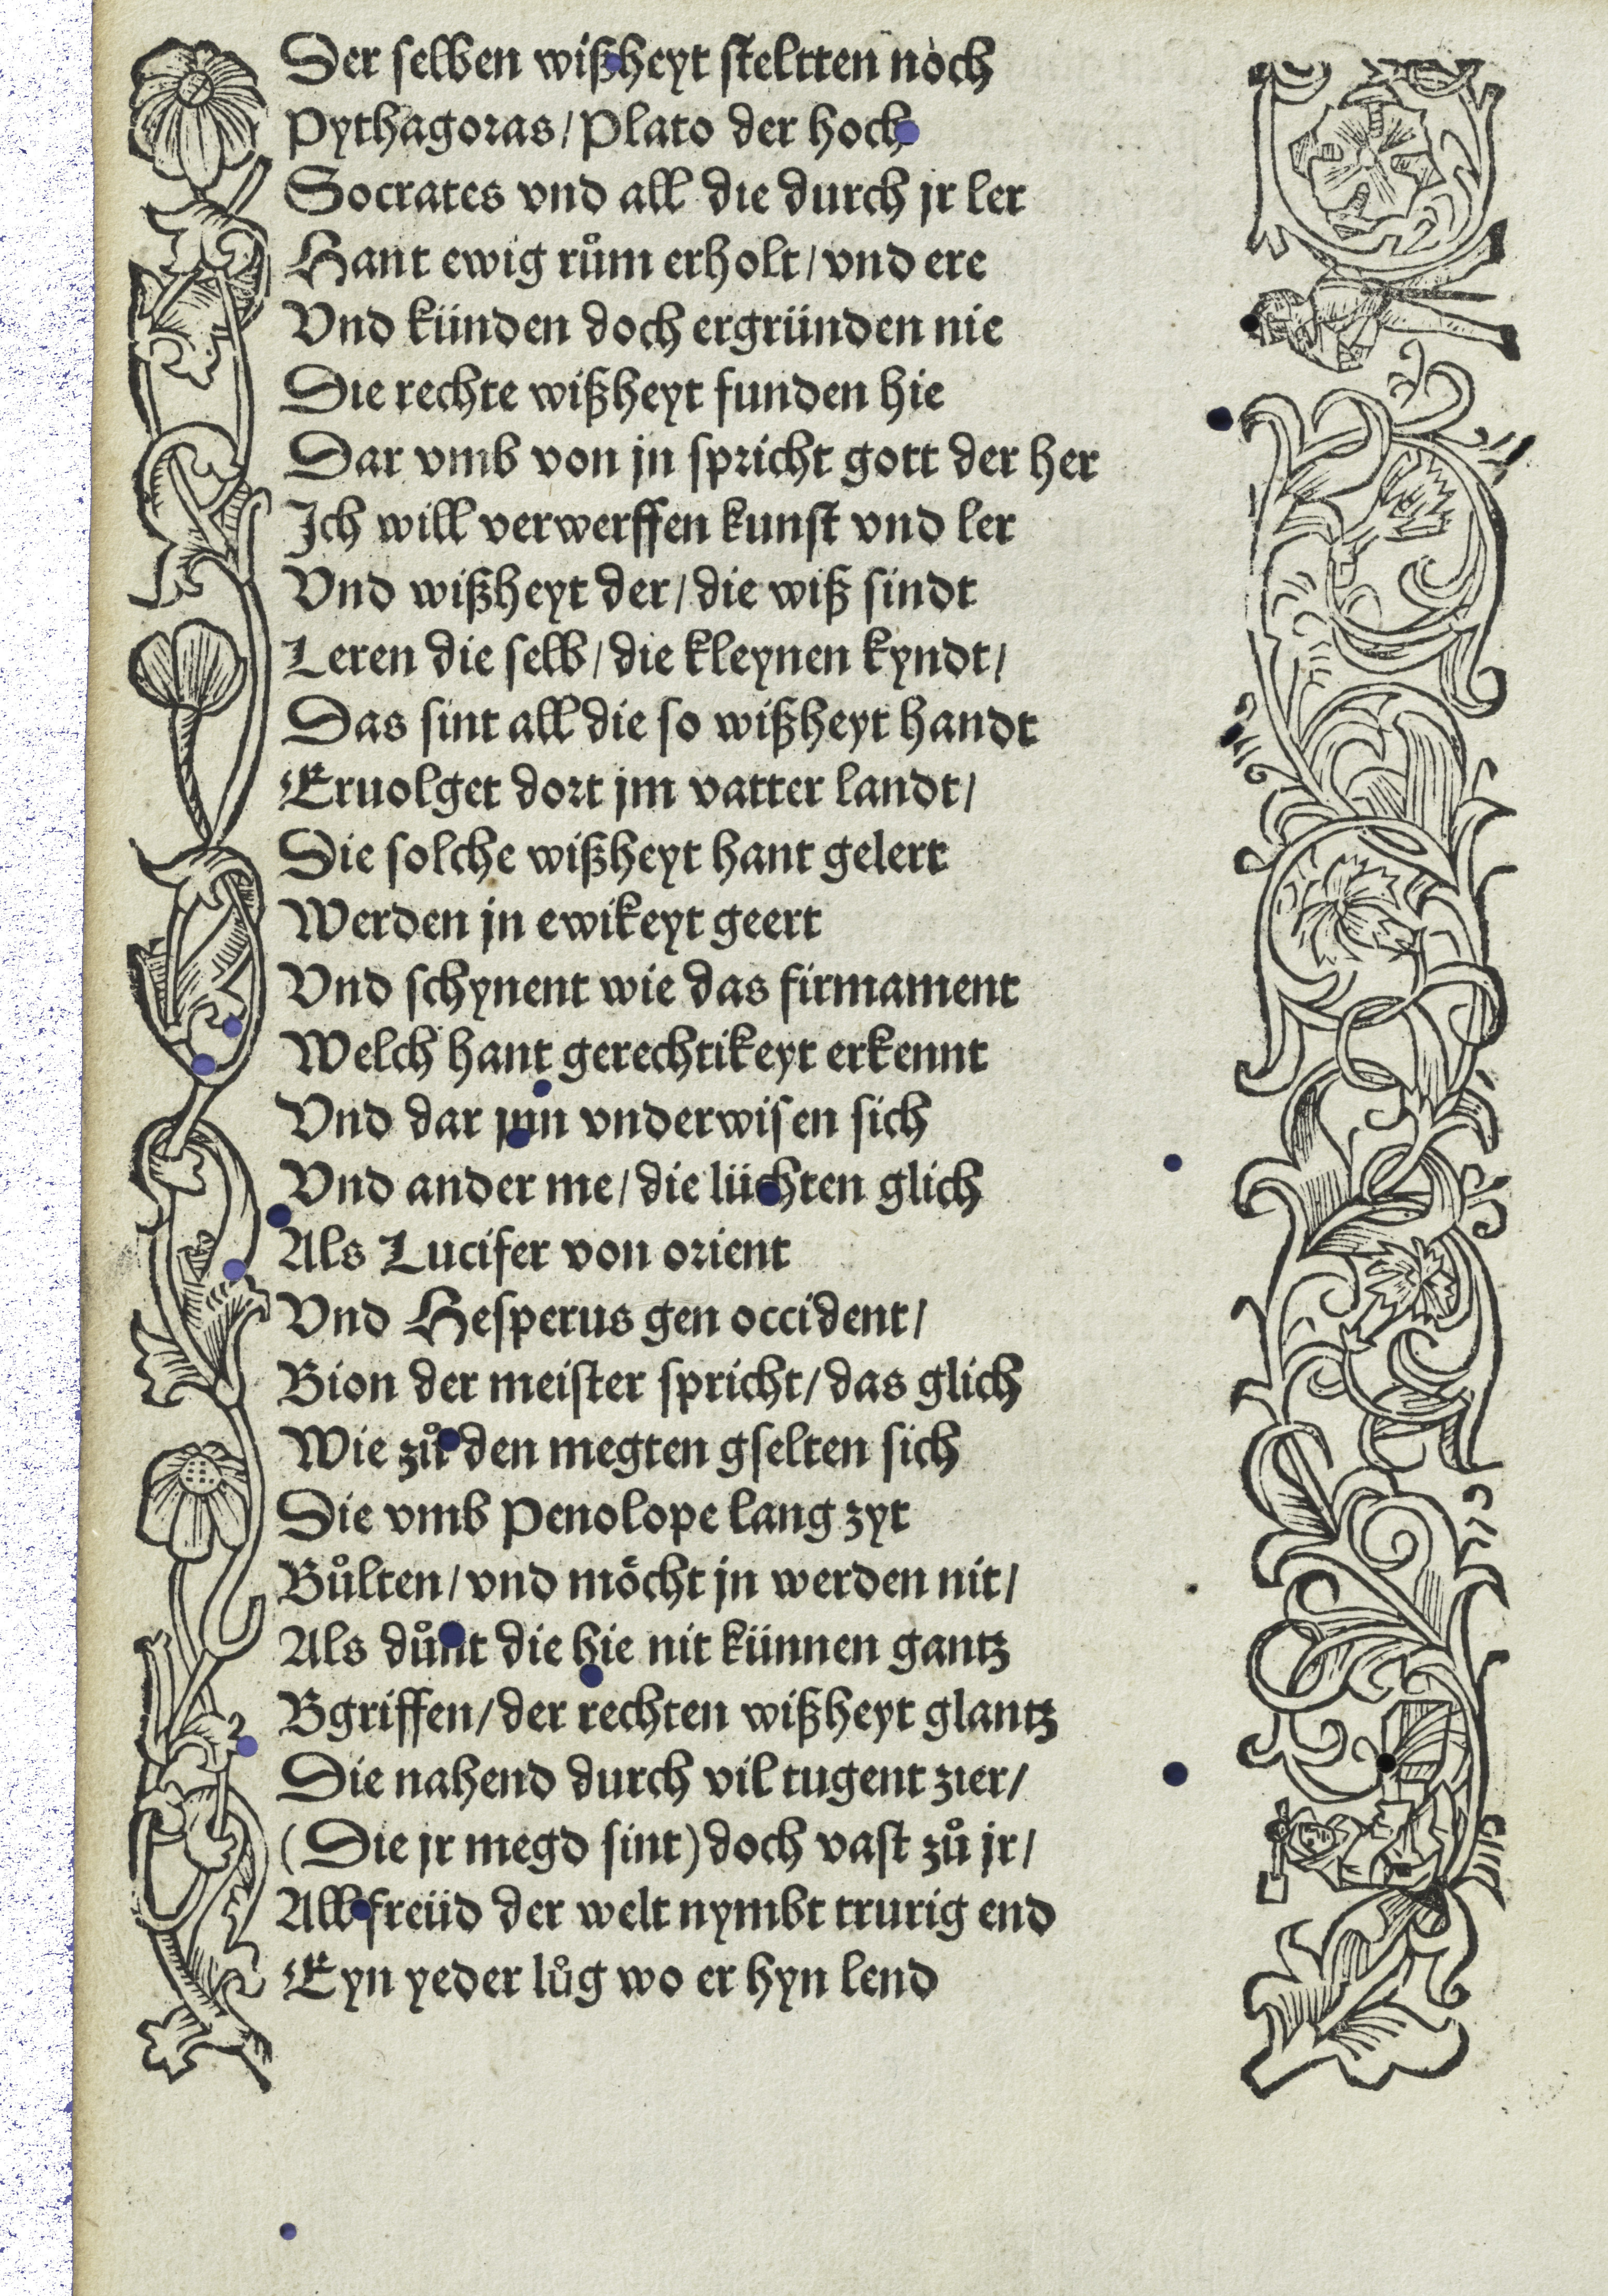 Der selben wißheyt steltten noch
Pythagoras/Plato der hoch
Socrates vnd all die durch jr ler
Hant ewig rům erholt/vnd ere
Vnd künden doch ergründen nie
Die rechte wißheyt funden hie
Dar vmb von jn spricht gott der her
Ich will verwerffen kunst vnd ler
Vnd wißheyt der/die wiß sindt
Leren die selb/die kleynen kyndt/
Das sint all die so wißheyt handt
Eruolget dort jm vatter landt/
Die solche wißheyt hant gelert
Werden jn ewikeyt geert
Vnd schynent wie das firmament
Welch hant gerechtikeyt erkennt
Vnd dar jnn vnderwisen sich
Vnd ander me/die lüchten glich
Als Lucifer von orient
Vnd Hesperus gen occident/
Bion der meister spricht/das glich
Wie zů den megten gselten sich
Die vmb Penolope lang zyt
Bůlten/vnd möcht jn werden nit/
Als důnt die hie nit künnen gantz
Bgriffen/der rechten wißheyt glantz
Die nahend durch vil tugent zier/
(Die jr megd sint) doch vast zů jr/
All freüd der welt nymbt trurig end
Eyn yeder lůg wo er hyn lend